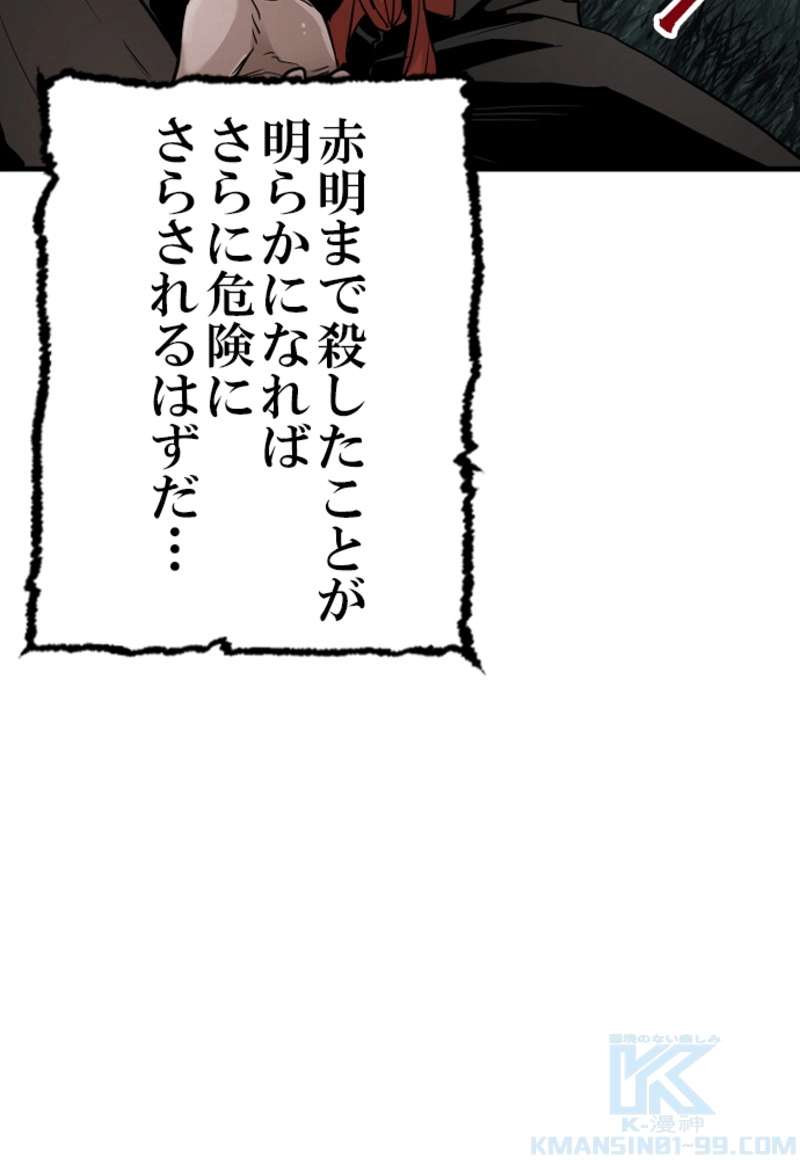 赤明まで殺したことが
明らかになれば
さらに危険に
さらされるはずだ…
限境のない癒しみ
K-漫神
KMANSIN01-99.COM